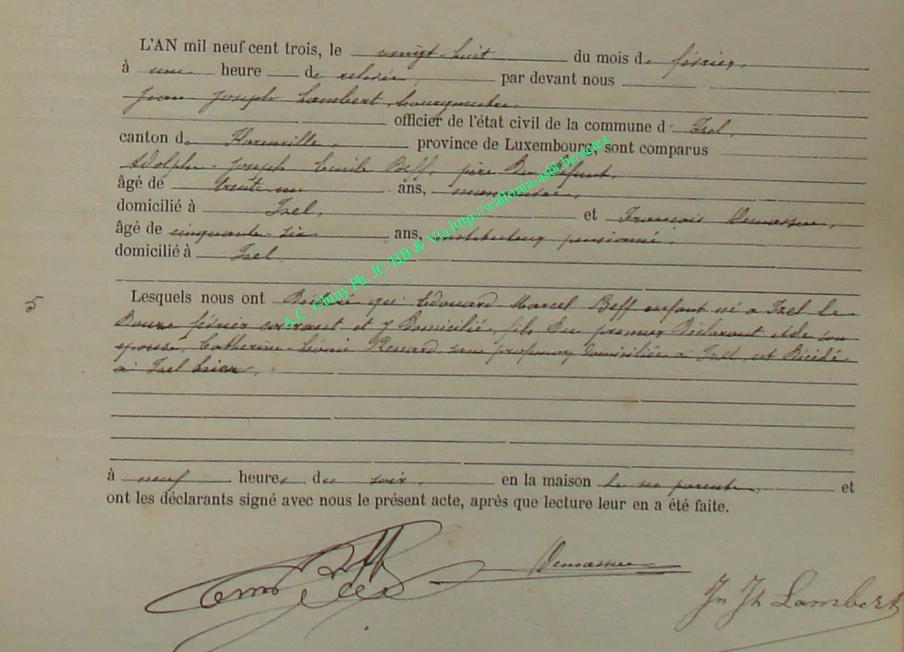 L'AN mil neuf cent trois, le vingt-huit du mois de février,
à une heure de relevée, par devant nous
Jean Joseph Lambert, bourgmestre,
officier de l'état civil de la commune d' Izel,
canton de Florenville, province de Luxembourg, sont comparus
Adolphe-Joseph Emile Beff, père du défunt,
âgé de trente un ans,
domicilié à Izel, et François Demasseu,
âgé de cinquante-six ans, instituteur pensionné,
domicilié à Izel
5
Lesquels nous ont déclaré que Edouard Marcel Beff enfant né à Izel le
douze février courant et y domicilié, fils du premier déclarant et de son
épouse, Catherine-Léonie Renard, sans profession, domiciliée à Izel, est décédé
à Izel hier,
à neuf heures du soir, en la maison de ses parents, et
ont les déclarants signé avec nous le présent acte, après que lecture leur en a été faite.
Beff
Demasseu
Jn Jh Lambert
A.C. Chiny Ph. JC/HB @ Via http://wallonia-asbl.be/actes